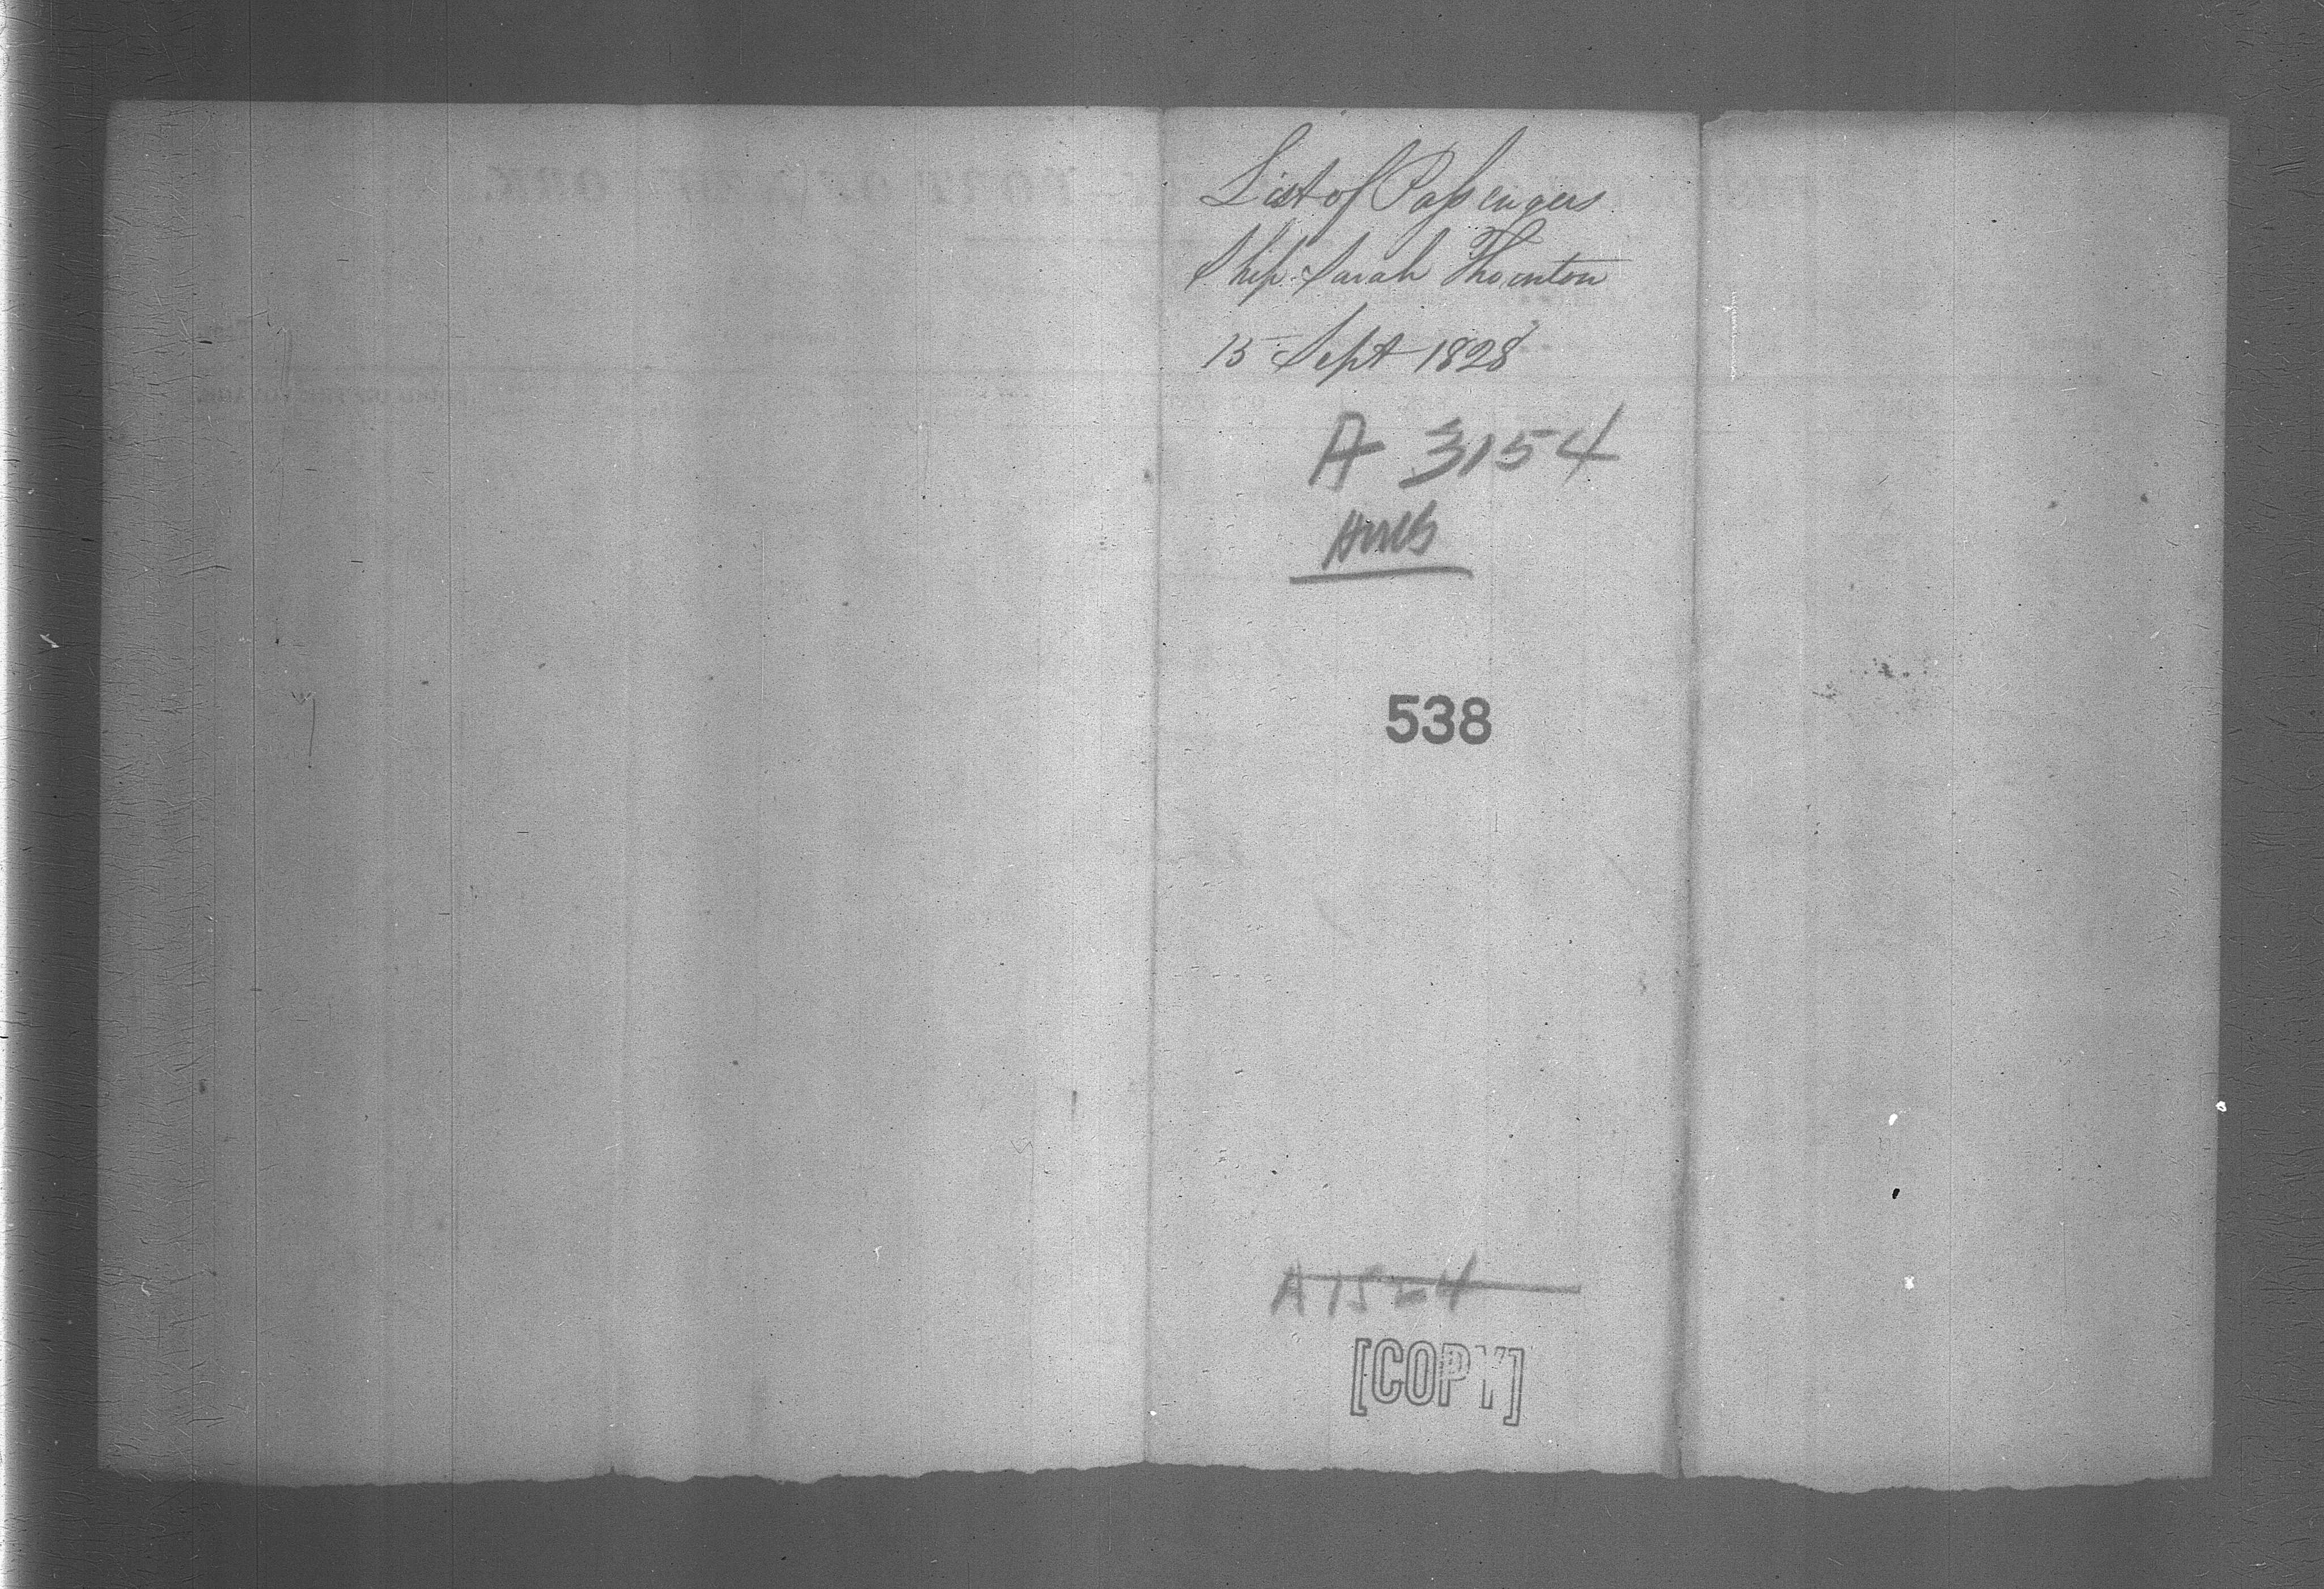 List of Passengers
Ship Sarah Thornton
15 Sept 1828
A 3154
538
A 1524
[COPY]